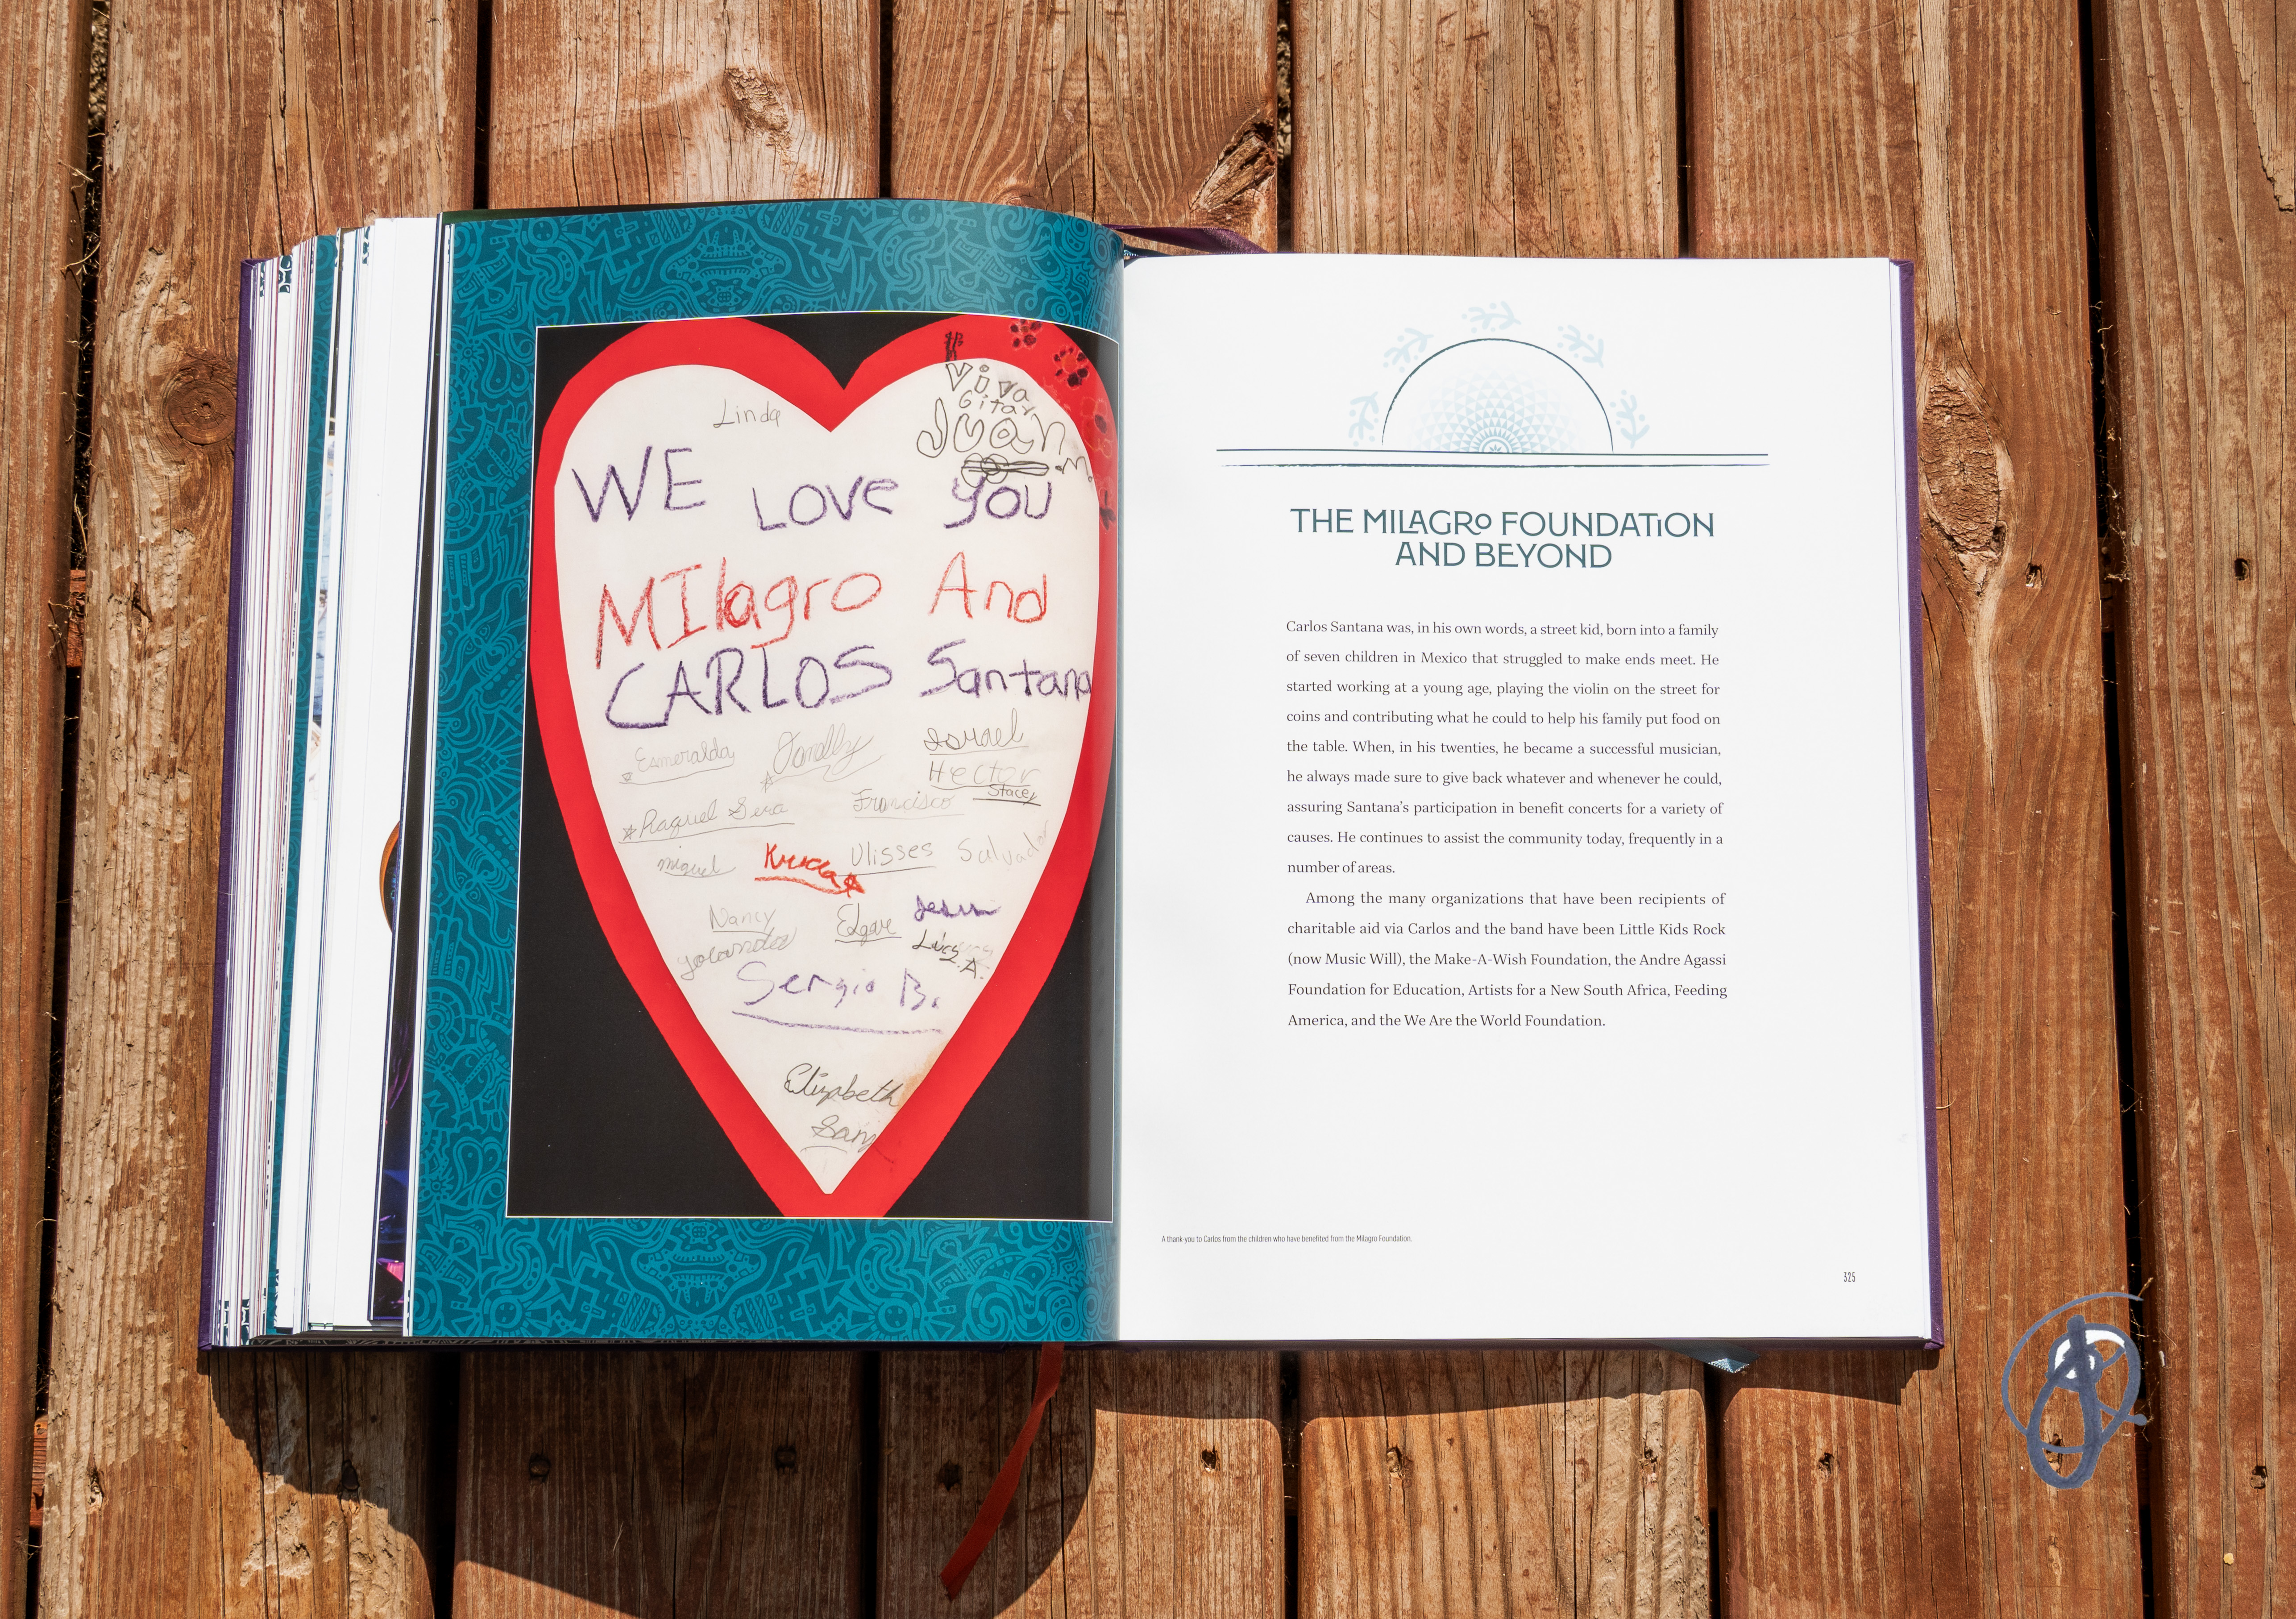 Linda
Viva
Gitar
Juan
.m.
WE LOVe YOU
MIlagro And
CARLOS Santana
Esmeralda
Israel
Hector
Stacey
Raquel
Francisco
miguel
Ulisses Salvador
Nancy
Edgar
yolanda
Sergio B.
THE MILAGRO FOUNDATiON
AND BEYOND
Carlos Santana was, in his own words, a street kid, born into a family
of seven children in Mexico that struggled to make ends meet. He
started working at a young age, playing the violin on the street for
coins and contributing what he could to help his family put food on
the table. When, in his twenties, he became a successful musician,
he always made sure to give back whatever and whenever he could,
assuring Santana's participation in benefit concerts for a variety of
causes. He continues to assist the community today, frequently in a
number of areas.
Among the many organizations that have been recipients of
charitable aid via Carlos and the band have been Little Kids Rock
(now Music Will), the Make-A-Wish Foundation, the Andre Agassi
Foundation for Education, Artists for a New South Africa, Feeding
America, and the We Are the World Foundation.
A thank-you to Carlos from the children who have benefited from the Milagro Foundation.
325